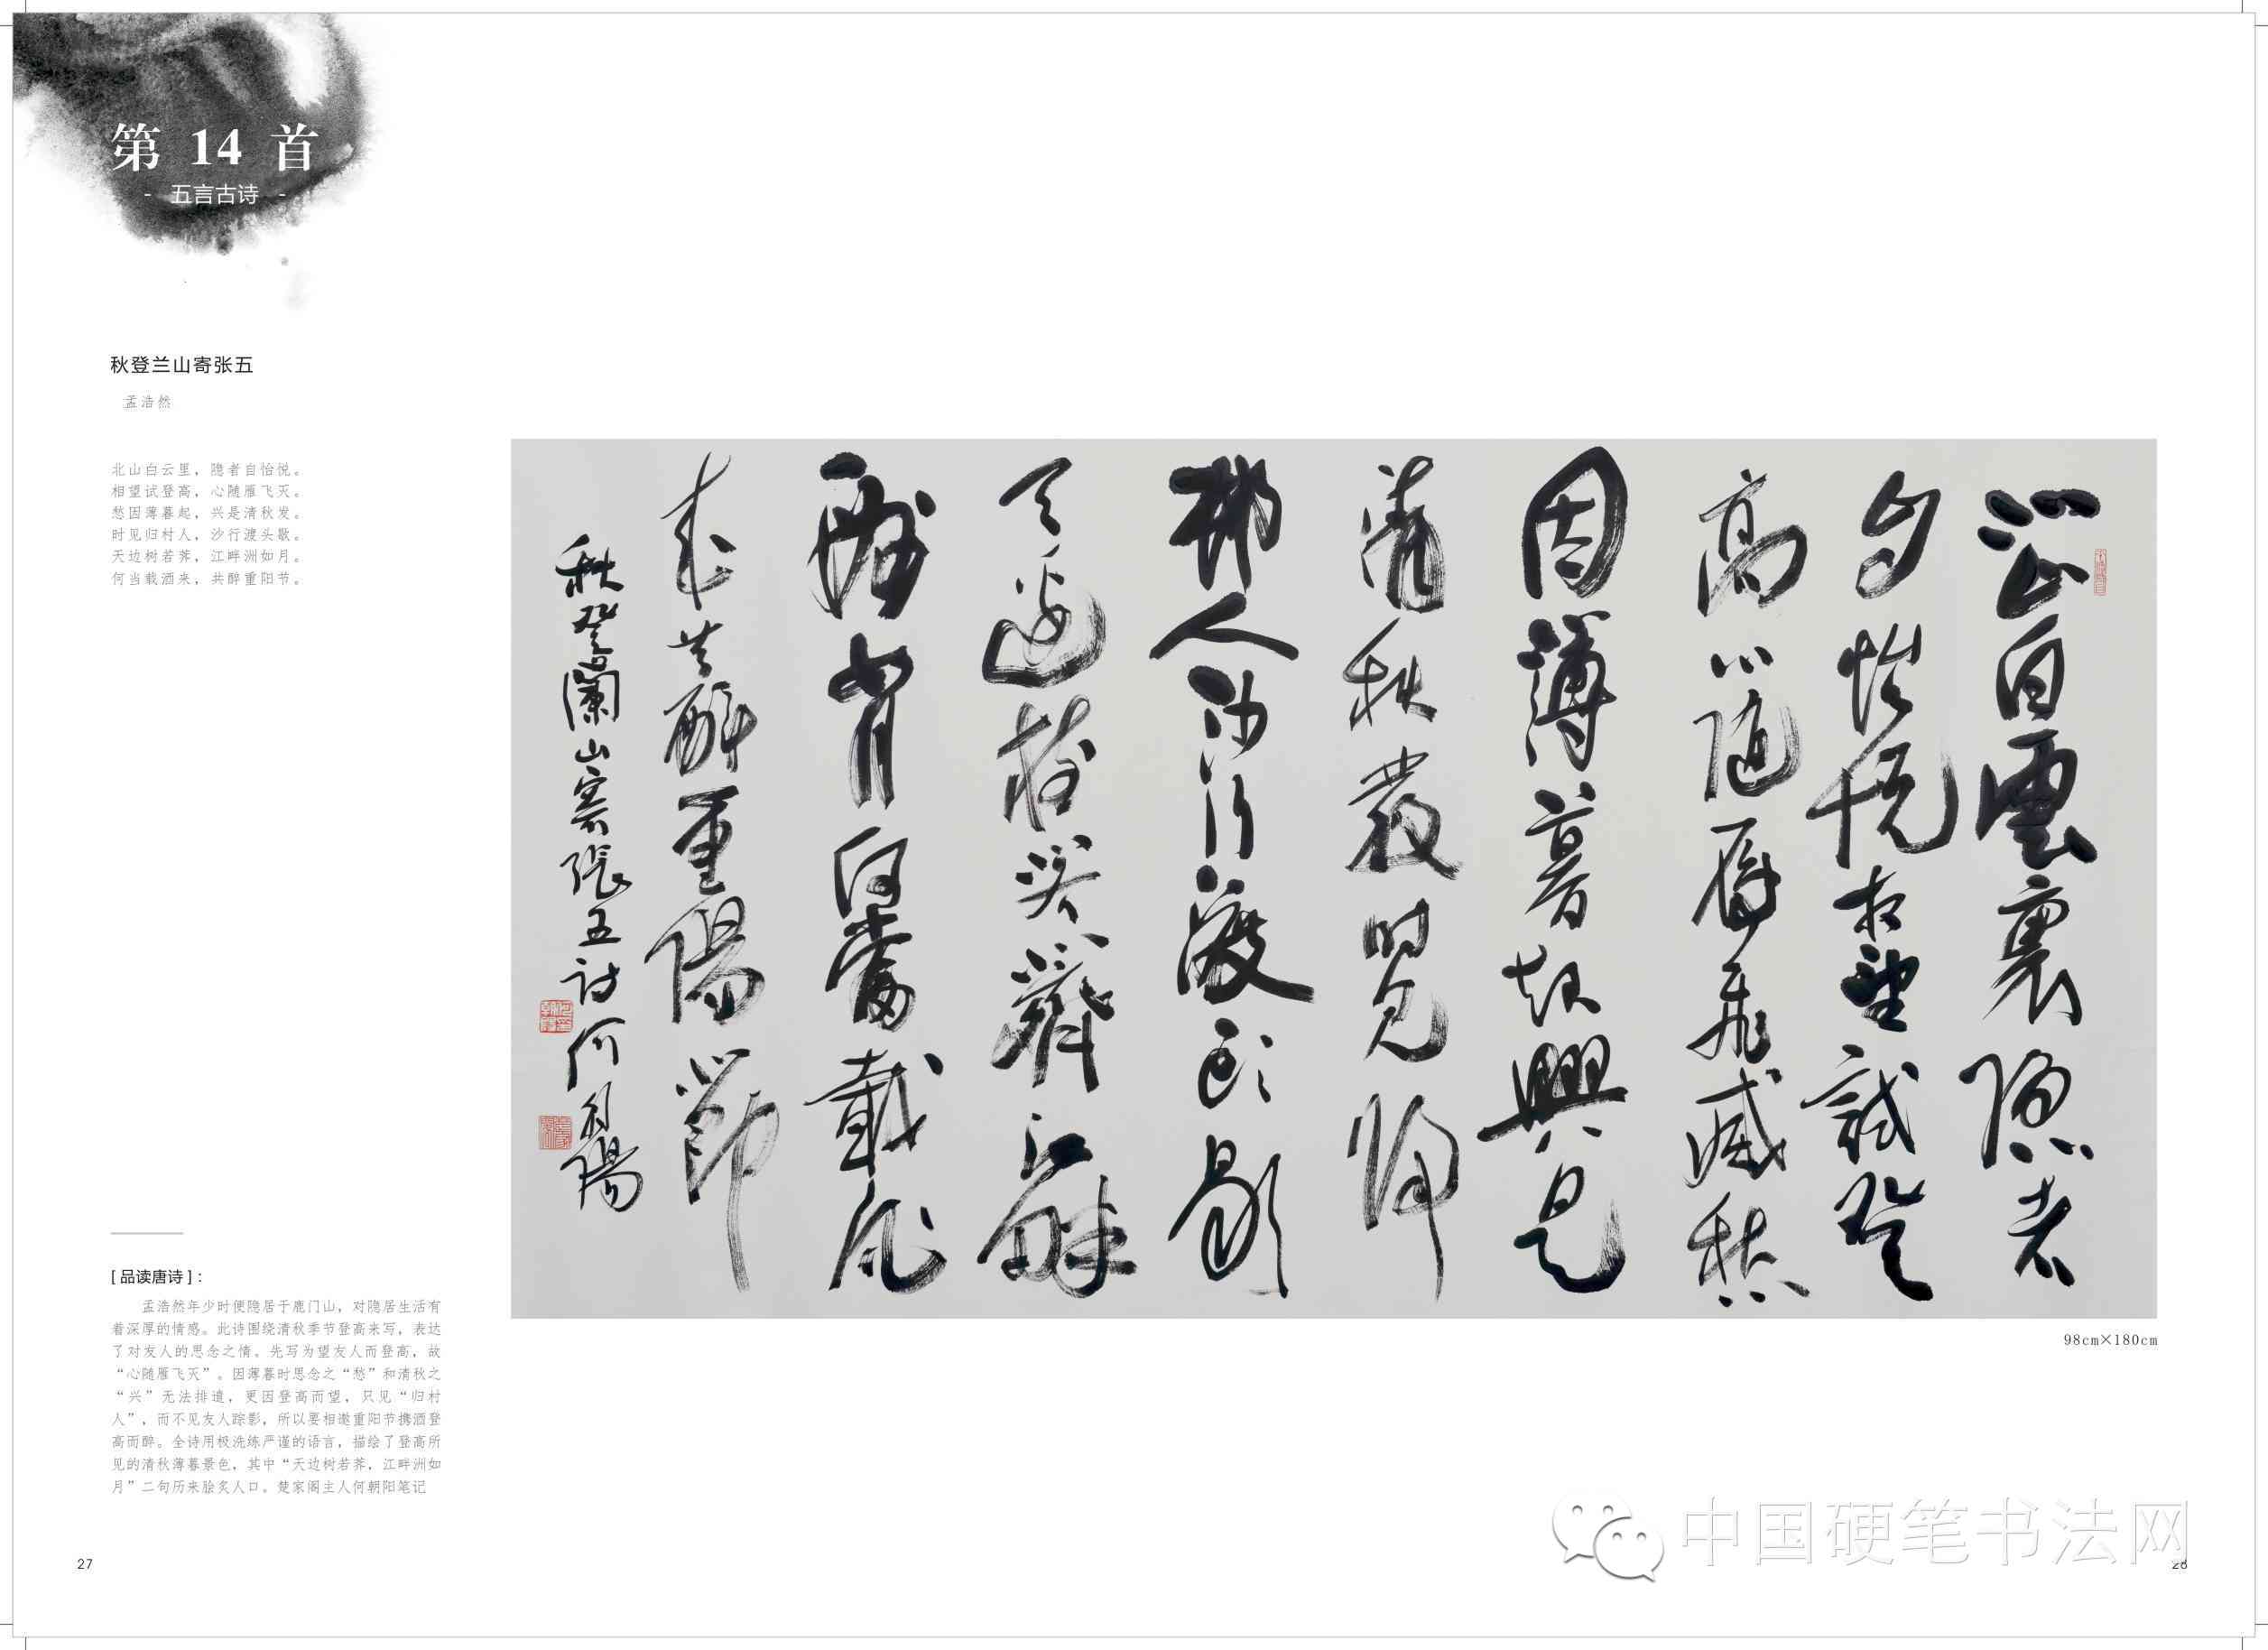 第 14 首
- 五言古诗 -
秋登兰山寄张五
孟浩然
北山白云里，隐者自怡悦。
相望试登高，心随雁飞灭。
愁因薄暮起，兴是清秋发。
时见归村人，沙行渡头歇。
天边树若荠，江畔洲如月。
何当载酒来，共醉重阳节。
北山白雲裏隱者
自怡悅相望試登
高心隨雁飛滅愁
因薄暮起興是
清秋發時見歸
邨人沙行渡頭歇
天邊樹若薺江畔
洲如月何當載酒
來共醉重陽節
秋登蘭山寄張五詩何朝陽
98cm×180cm
[ 品读唐诗 ]：
孟浩然年少时便隐居于鹿门山，对隐居生活有
着深厚的情感。此诗围绕清秋季节登高来写，表达
了对友人的思念之情。先写为望友人而登高，故
“心随雁飞灭”。因薄暮时思念之“愁”和清秋之
“兴”无法排遣，更因登高而望，只见“归村
人”，而不见友人踪影，所以要相邀重阳节携酒登
高而醉。全诗用极洗练严谨的语言，描绘了登高所
见的清秋薄暮景色，其中“天边树若荠，江畔洲如
月”二句历来脍炙人口。楚家阁主人何朝阳笔记
中国硬笔书法网
27
28